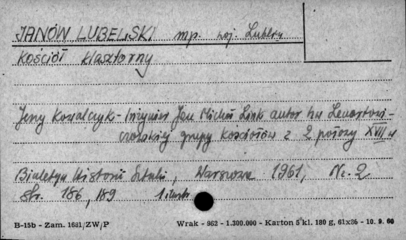 JANÓW LUBELSKI mp. woj. Lublin
Kościół klasztorny
Jerzy Kowalczyk - Inżynier Jan Michał Link autor
grupy kościołów z 2 połowy XVII w
Biuletyn Historii Sztuki, Warszawa 1961, Nr. 2
str. 186, 189 1 ilustr.
B-15b - Zam. 1681/ZW/P Wrak - 962 - 1.300.000 - Karton 5 kl. 180 g, 61x86 - 10. 9. 60